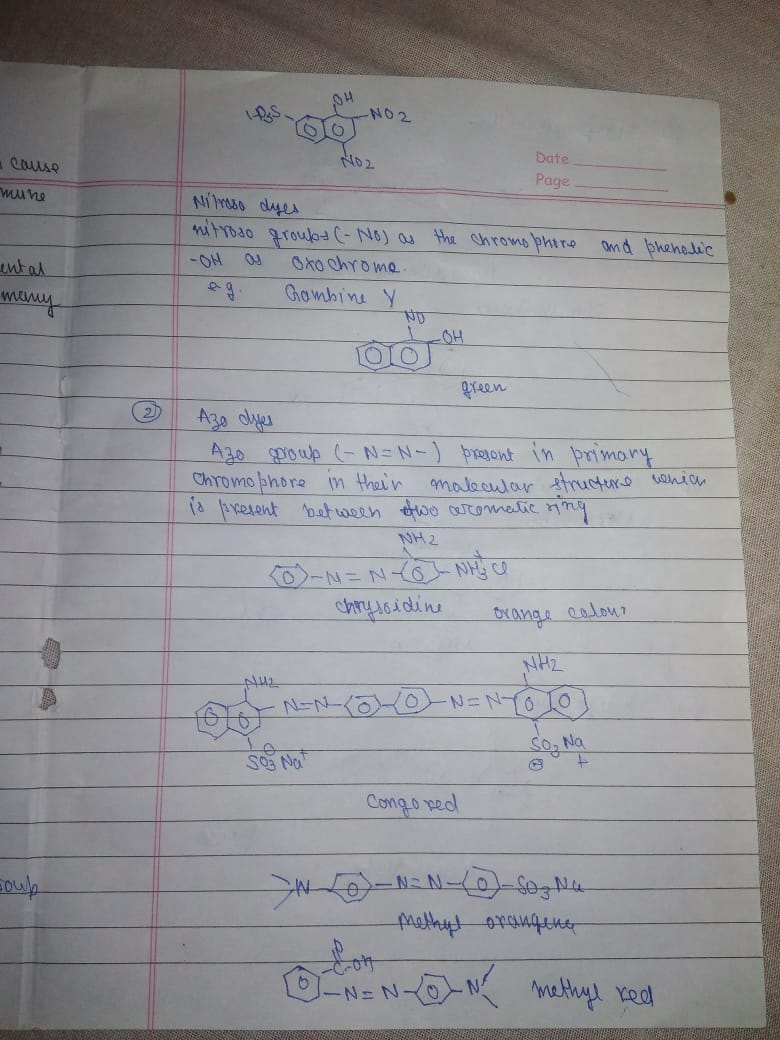 OH
NO2
NO2
Date
Page
cause
mune
ental
many
oup
Nitroso dyes
nitroso groups (- NO) as the chromophore and phenolic
-OH as oxochrome.
e g. Gambine Y
NO
OH
green
2 Azo dyes
Azo group (- N=N-) present in primary
chromophore in their molecular structure which
is present between two aromatic ring
NH2
-N=N- -NH3+ Cl
chrysoidine orange colour
NH2
NH2
-N=N- -N=N-
SO3 Na+
SO3 Na +
Congo red
N- -N=N- -SO3 Na
Methyl
C-OH
-N=N- -N
methyl red